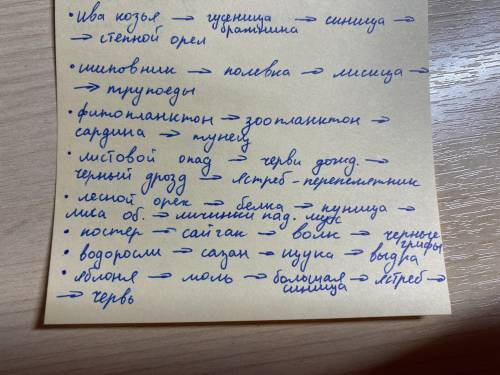 • Ива козья → гусеница бражника → синица →
→ степной орел
• шиповник → полевка → лисица →
→ трупоеды
• фитопланктон → зоопланктон →
сардина → тунец
• листовой опад → черви дожд. →
черный дрозд → ястреб-перепелятник
• лесной орех → белка → куница →
лиса об. → личинки пад. мух
• костер → сайгак → волк → черные грифы
• водоросли → сазан → щука → выдра
• яблоня → моль → большая синица → ястреб →
→ червь